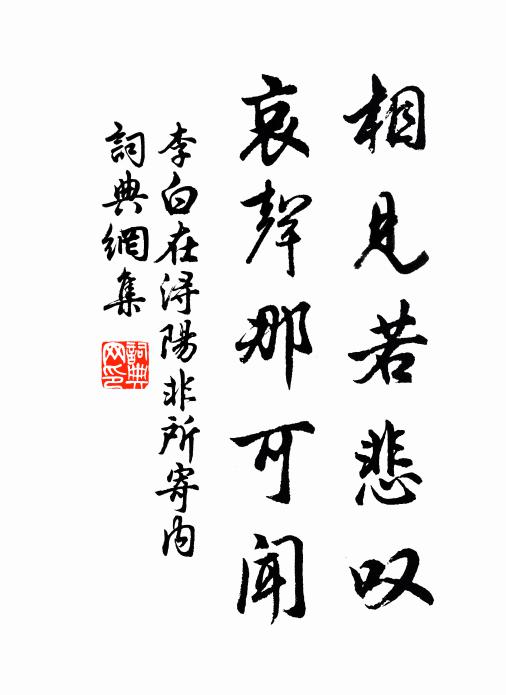 相見若悲叹
哀聲那可聞
李白在浔陽非所寄内
詞典網集
詞典网印